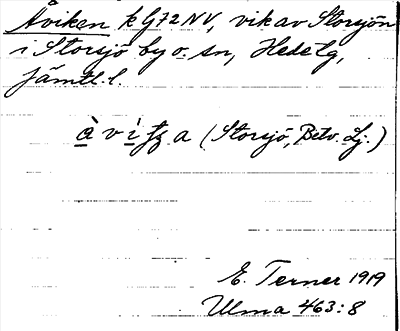 Åviken k G72NV, vik av Storsjön
i Storsjö by o. sn, Hede tg,
Jämtl. l.
à v ì ꞎ a (Storsjö, Betv. Lj.)
E. Terner 1919
Ulma 463:8